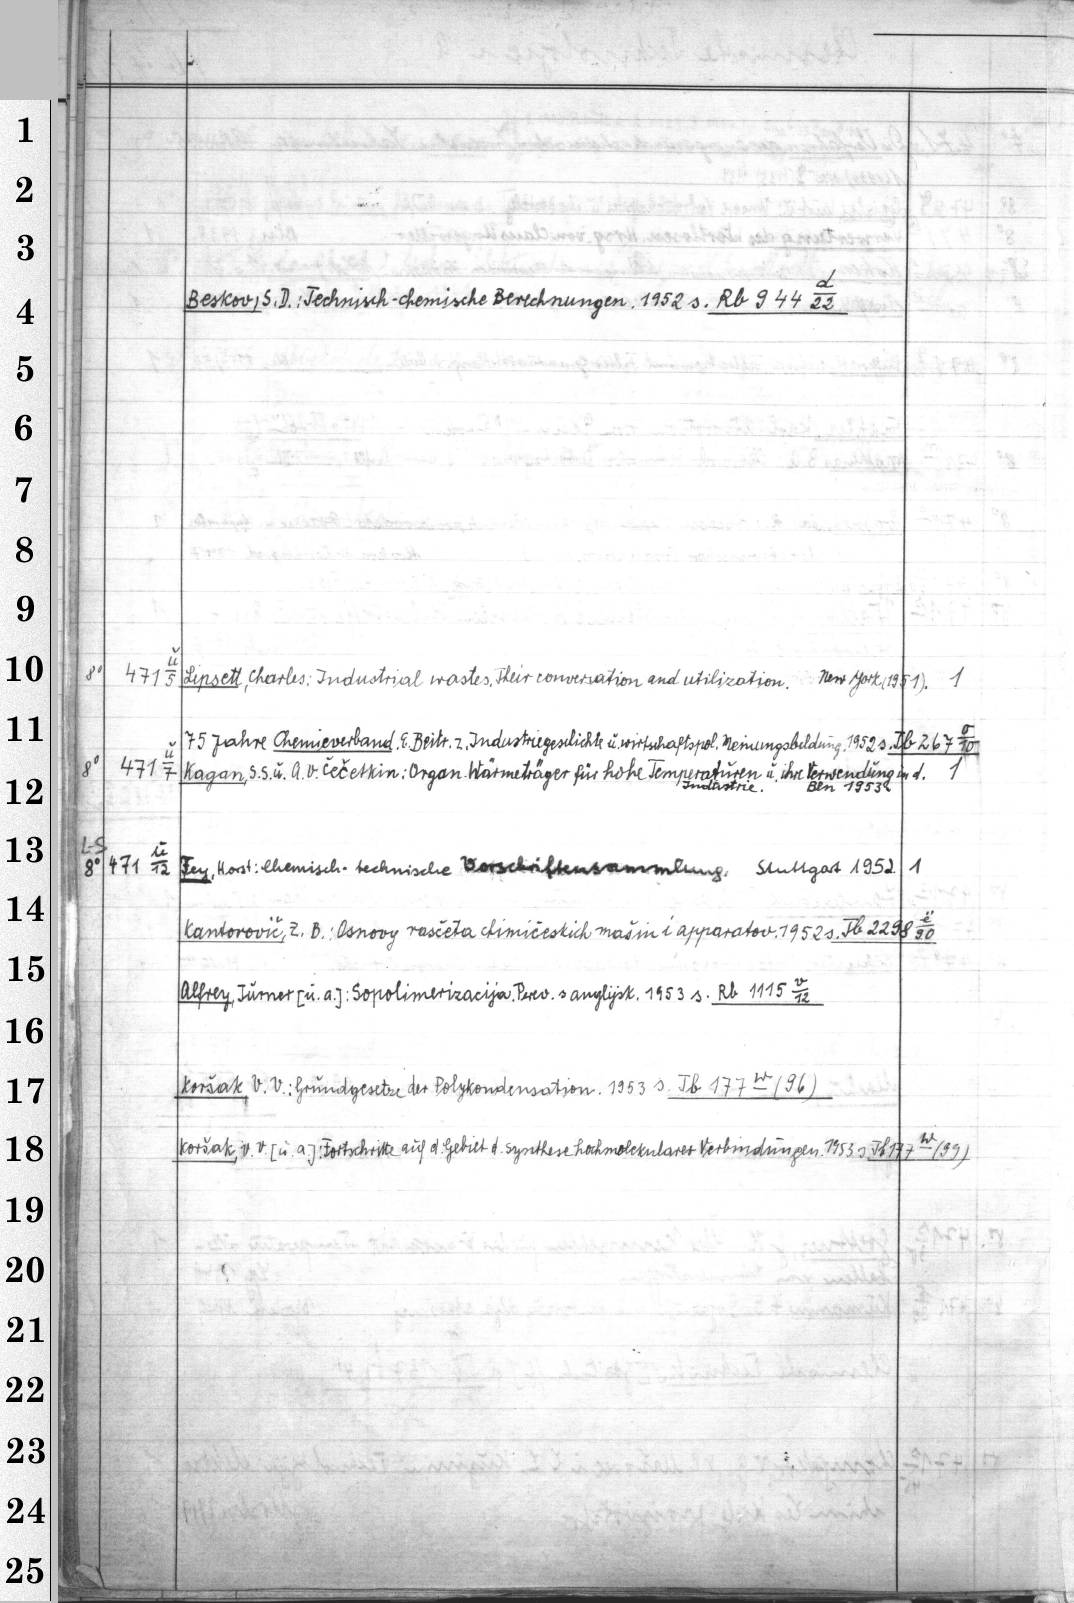 1
2
3
Beskov, S. D.: Technisch-chemische Berechnungen. 1952 s. Rb 944 d/22
4
5
6
7
8
9
10 8° 471 ŭ/5 Lipsett, Charles: Industrial wastes, Their conversation and utilization. New York (1951). 1
11 75 Jahre Chemieverband. E. Beitr. z. Industriegeschichte ŭ. wirtschaftspol. Meinungsbildung. 1952 s. Ib 267 σ/10
8° 471 ŭ/7 Kagan, S. S. ŭ. A. V. Čečetkin: Organ. Wärmeträger für hohe Temperatŭren ŭ. ihre Verwendŭng in d. 1
12 Indŭstrie. Bln 1953
13 L-S
8° 471 ŭ/12 Fey, Horst: Chemisch-technische Vorschriftensammlung. Stuttgart 1952 1
14 Kantorovič, Z. B.: Osnovy rasčëta chimičeskich mašin i apparatov. 1952 s. Ib 2298 ë/90
15 Alfrey, Tŭrner [ŭ. a.]: Sopolimerizacija. Perev. s anglijsk. 1953 s. Rb 1115 v/12
16
17 Koršak, V. V.: Grŭndgesetze der Polykondensation. 1953 s. Ib 177 w (96)
18 Koršak, V. V. [ŭ. a.]: Fortschritte aŭf d. Gebiet d. Synthese hochmolekularer Verbindŭngen. 1953 s. Ib 177 w (99)
19
20
21
22
23
24
25